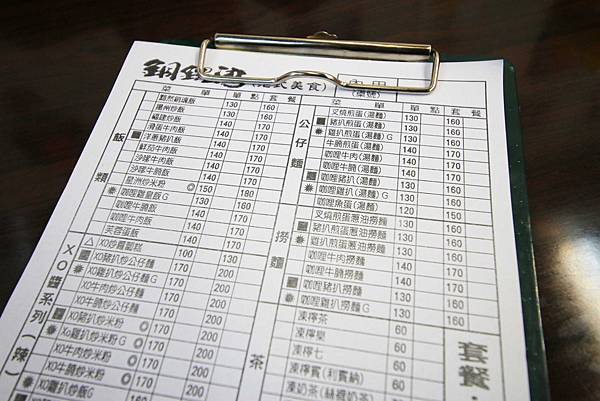 銅鑼灣(港式美食)
菜 單 單點 套餐
飯類
黯然銷魂飯 130 160
揚州炒飯 130 160
福建炒飯 140 170
滑蛋牛肉飯 140 170
洋蔥豬扒飯 140 170
鮮茄牛肉飯 140 170
沙嗲牛肉飯 140 170
沙嗲牛腩飯 140 170
星洲炒米粉 150 180
咖哩雞皇飯G 130 160
咖哩牛腩飯 140 170
咖哩牛肉飯 140 170
芙蓉蛋飯 140 170
XO醬系列(辣)
XO炒蘿蔔糕 100 130
XO豬扒炒公仔麵 170 200
XO雞扒炒公仔麵G 170 200
XO牛肉炒公仔麵 170 200
XO牛腩炒公仔麵 170 200
XO豬扒炒米粉 170 200
XO雞扒炒米粉G 170 200
XO牛肉炒米粉 170 200
XO牛腩炒米粉 170 200
XO雞扒炒飯G
菜 單 單點 套餐
公仔麵
叉燒煎蛋(湯麵) 130 160
豬扒煎蛋(湯麵) 130 160
雞扒煎蛋(湯麵)G 130 160
牛腩煎蛋(湯麵) 140 170
咖哩牛肉(湯麵) 140 170
咖哩牛腩(湯麵) 140 170
咖哩豬扒(湯麵) 130 160
咖哩雞扒(湯麵)G 130 160
咖哩魚蛋(湯麵) 120 150
撈麵
叉燒煎蛋蔥油撈麵 130 160
豬扒煎蛋蔥油撈麵 130 160
雞扒煎蛋蔥油撈麵G 130 160
咖哩牛肉撈麵 140 170
咖哩牛腩撈麵 140 170
咖哩豬扒撈麵 130 160
咖哩雞扒撈麵G 130 160
茶
凍檸茶 60
凍檸樂 60
凍檸七 60
凍檸賓(利賓納) 60
凍奶茶(絲襪奶茶) 60
套餐